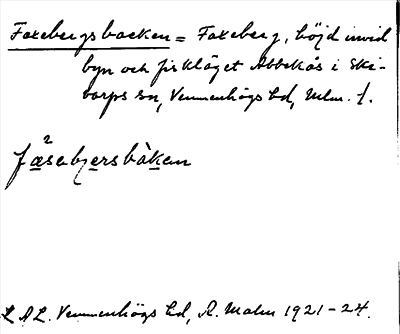 Faxebergsbacken = Faxeberg, höjd invid
byn och fiskläget Abbekås i Ski-
varps sn, Vemmenhögs hd, Mlm. l.
fæ²sabjersbàken
L A L. Vemmenhögs hd, R. Malm 1921-24.